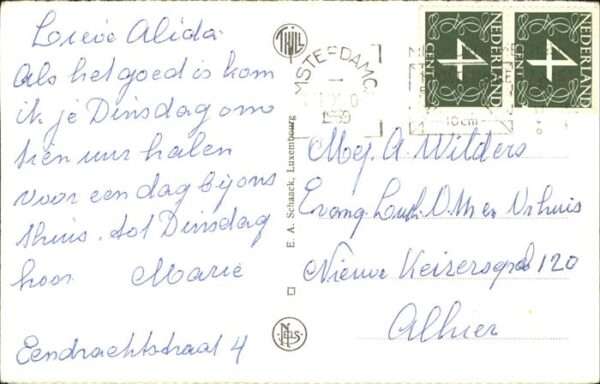 Lieve Alida.
Als het goed is kom
ik je Dinsdag om
tien uur halen
voor een dag bij ons
thuis. tot Dinsdag
hoor Marie
Eendrachtstraat 4
THILL
E. A. Schaack, Luxembourg
NELS
MSTERDAM C
1959
10cm
NEDERLAND
4
CENT
NEDERLAND
4
CENT
Mej. A. Wilders
Evang. Luth. O.M en Vrhuis
Nieuwe Keizersgr 120
Alhier